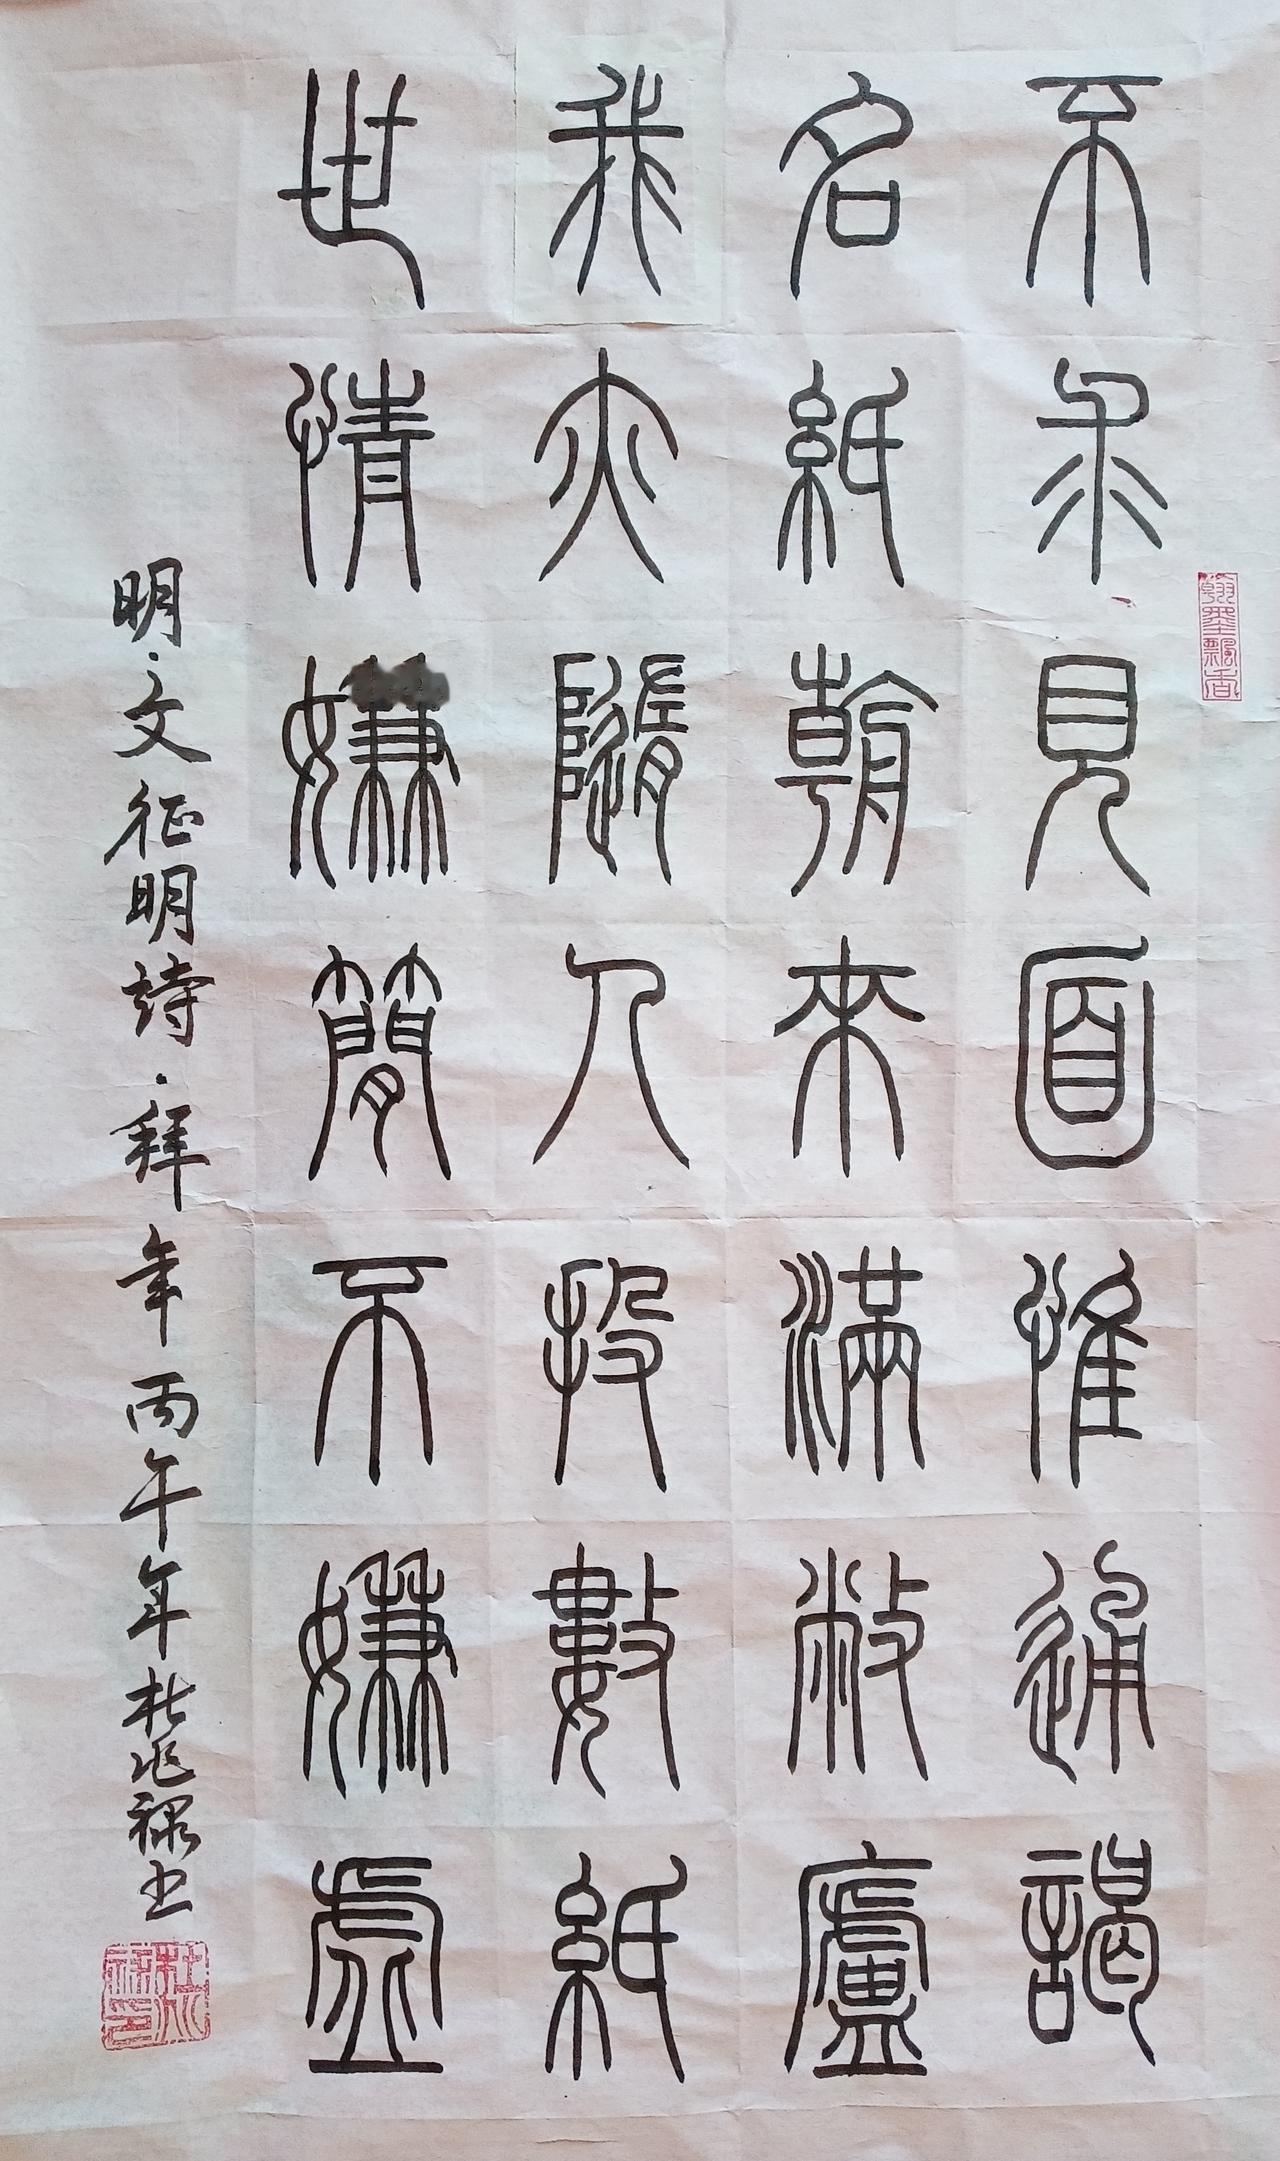 翰墨飘香
不求見面惟通謁
名紙朝來滿敝廬
我亦隨人投數紙
世情嫌簡不嫌虛
明·文征明詩·拜年丙午年杜兆祿书